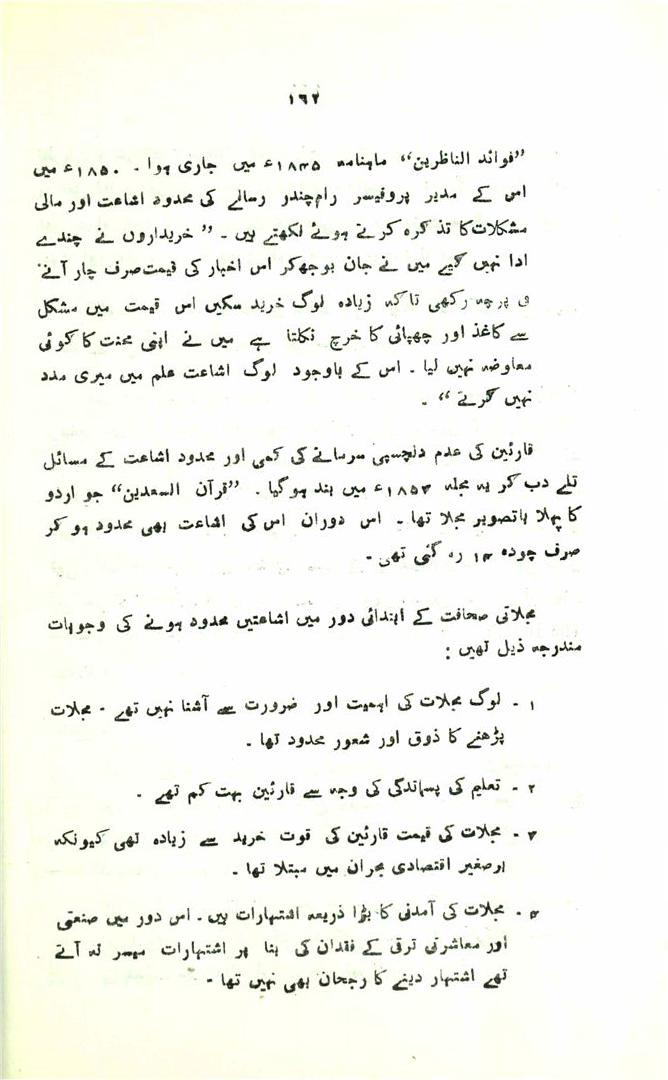 ۱۶۲
”فوائد الناظرین“ ماہنامہ ۱۸۴۵ء میں جاری ہوا ۔ ۱۸۵۰ء میں
اس کے مدیر پروفیسر رام چندر رسالے کی محدود اشاعت اور مالی
مشکلات کا تذکرہ کرتے ہوئے لکھتے ہیں ۔ ” خریداروں نے چندے
ادا نہیں کیے میں نے جان بوجھ کر اس اخبار کی قیمت صرف چار آنے
فی پرچہ رکھی تاکہ زیادہ لوگ خرید سکیں اس قیمت میں مشکل
سے کاغذ اور چھپائی کا خرچ نکلتا ہے میں نے اپنی محنت کا کوئی
معاوضہ نہیں لیا ۔ اس کے باوجود لوگ اشاعت علم میں میری مدد
نہیں کرتے “ ۔
قارئین کی عدم دلچسپی سرمائے کی کمی اور محدود اشاعت کے مسائل
تلے دب کر یہ مجلہ ۱۸۵۲ء میں بند ہوگیا ۔ ”قرآن السعدین“ جو اردو
کا پہلا باتصویر مجلا تھا ۔ اس دوران اس کی اشاعت بھی محدود ہو کر
صرف چودہ ۱۴ رہ گئی تھی ۔
مجلاتی صحافت کے ابتدائی دور میں اشاعتیں محدود ہونے کی وجوہات
مندرجہ ذیل تھیں :
۱ ۔ لوگ مجلات کی اہمیت اور ضرورت سے آشنا نہیں تھے ۔ مجلات
پڑھنے کا ذوق اور شعور محدود تھا ۔
۲ ۔ تعلیم کی پسماندگی کی وجہ سے قارئین بہت کم تھے ۔
۳ ۔ مجلات کی قیمت قارئین کی قوت خرید سے زیادہ تھی کیونکہ
برصغیر اقتصادی بحران میں مبتلا تھا ۔
۴ ۔ مجلات کی آمدنی کا بڑا ذریعہ اشتہارات ہیں ۔ اس دور میں صنعتی
اور معاشرتی ترقی کے فقدان کی بنا پر اشتہارات میسر نہ آتے
تھے اشتہار دینے کا رجحان بھی نہیں تھا ۔